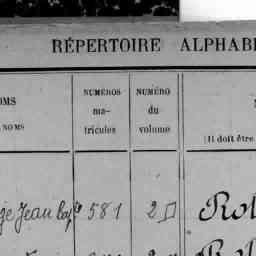 RÉPERTOIRE ALPHABE
OMS
NOMS
NUMÉROS
ma-
tricules
NUMÉRO
du
volume
(Il doit être
Jean 581 2
Rol